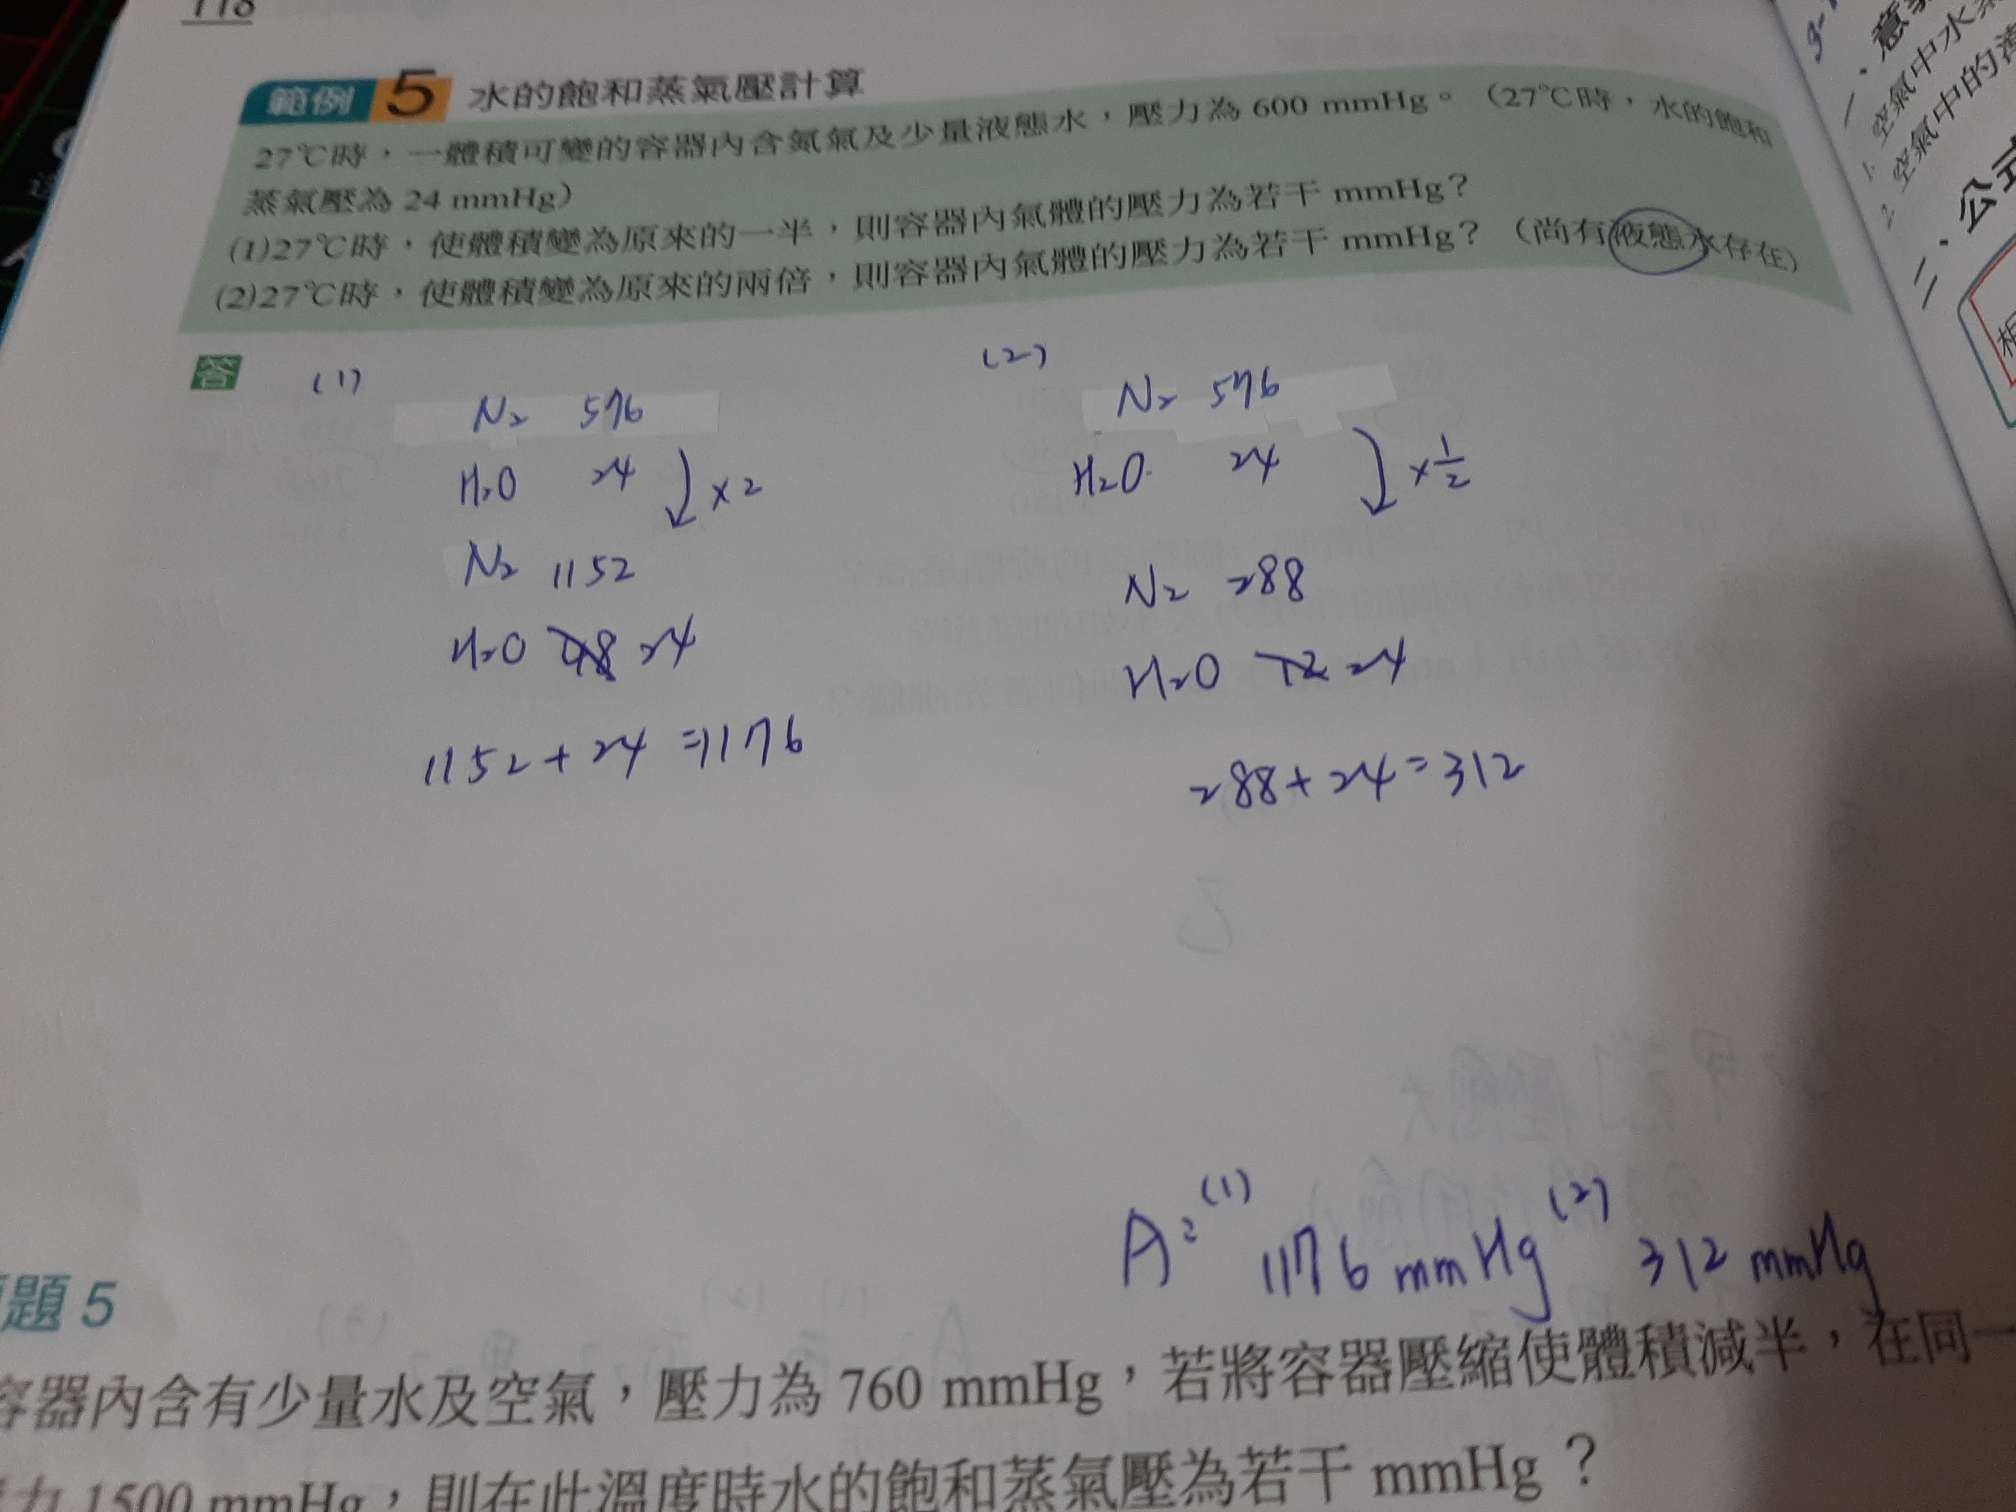 118
範例 5 水的飽和蒸氣壓計算
27℃時，一體積可變的容器內含氮氣及少量液態水，壓力為 600 mmHg。（27℃時，水的飽和
蒸氣壓為 24 mmHg）
(1)27℃時，使體積變為原來的一半，則容器內氣體的壓力為若干 mmHg？
(2)27℃時，使體積變為原來的兩倍，則容器內氣體的壓力為若干 mmHg？（尚有液態水存在）
答
(1)
N₂ 576
H₂O 24 ×2
N₂ 1152
H₂O 48 24
1152+24=1176
(2)
N₂ 576
H₂O 24 ×1/2
N₂ 288
H₂O 12 24
288+24=312
A: (1) 1176 mmHg (2) 312 mmHg
題 5
容器內含有少量水及空氣，壓力為 760 mmHg，若將容器壓縮使體積減半，在同一
力 1500 mmHg，則在此溫度時水的飽和蒸氣壓為若干 mmHg？
一、意
1. 空氣中水
2. 空氣中的
二、公式